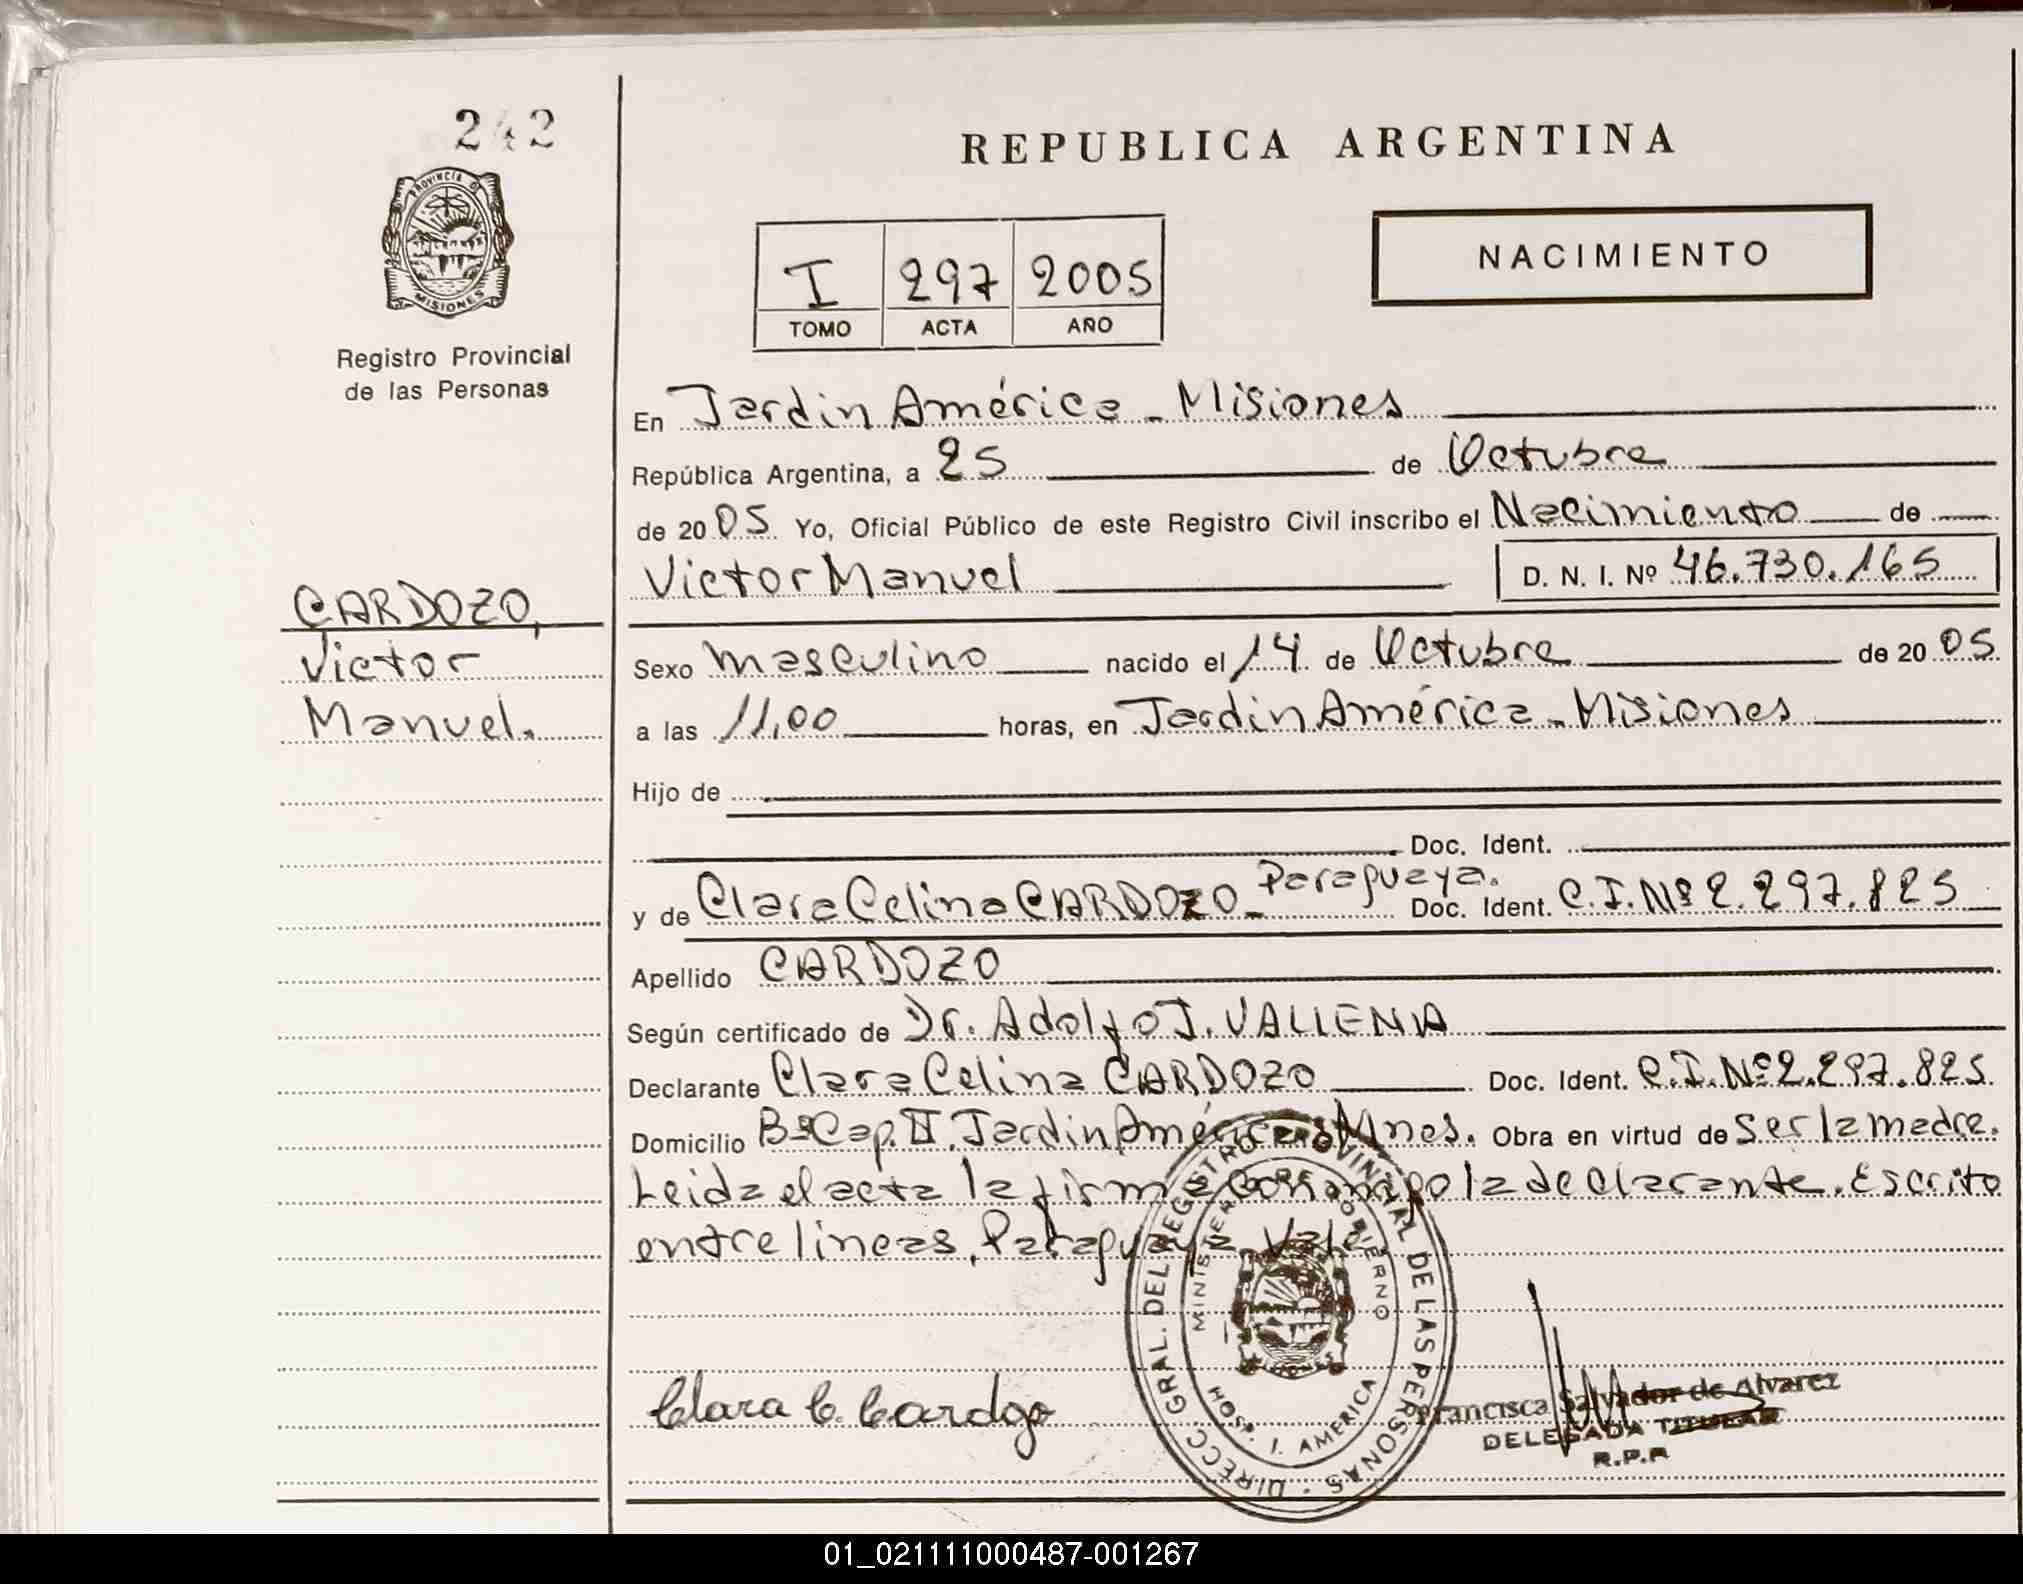 242
PROVINCIA D
MISIONES
Registro Provincial
de las Personas
CARDOZO,
Victor
Manuel.
REPUBLICA ARGENTINA
I 297 2005
TOMO ACTA AÑO
NACIMIENTO
En Jardin América - Misiones
República Argentina, a 25 de Octubre
de 2005 Yo, Oficial Público de este Registro Civil inscribo el Nacimiento de
Victor Manuel D. N. I. Nº 46.730.165
Sexo masculino nacido el 14 de Octubre de 2005
a las 11,00 horas, en Jardin América - Misiones
Hijo de
Doc. Ident.
y de Clara Celina CARDOZO - Paraguaya. Doc. Ident. C.I.Nº 2.297.825
Apellido CARDOZO
Según certificado de Dr. Adolfo J. VALLENIA
Declarante Clara Celina CARDOZO Doc. Ident. C.I.Nº 2.297.825
Domicilio Bº Cap. II. Jardin América Mnes. Obra en virtud de ser la madre.
Leida el acta la firma conmigo la declarante. Escrito
entre lineas, Paraguaya. Vale
DIRECC GRAL. DEL REGISTRO PROVINCIAL DE LAS PERSONAS
MINISTERIO DE GOBIERNO
HOSP. J. AMERICA
Clara C. Cardozo
Francisca Salvador de Alvarez
DELEGADA TITULAR
R.P.P
01_021111000487-001267